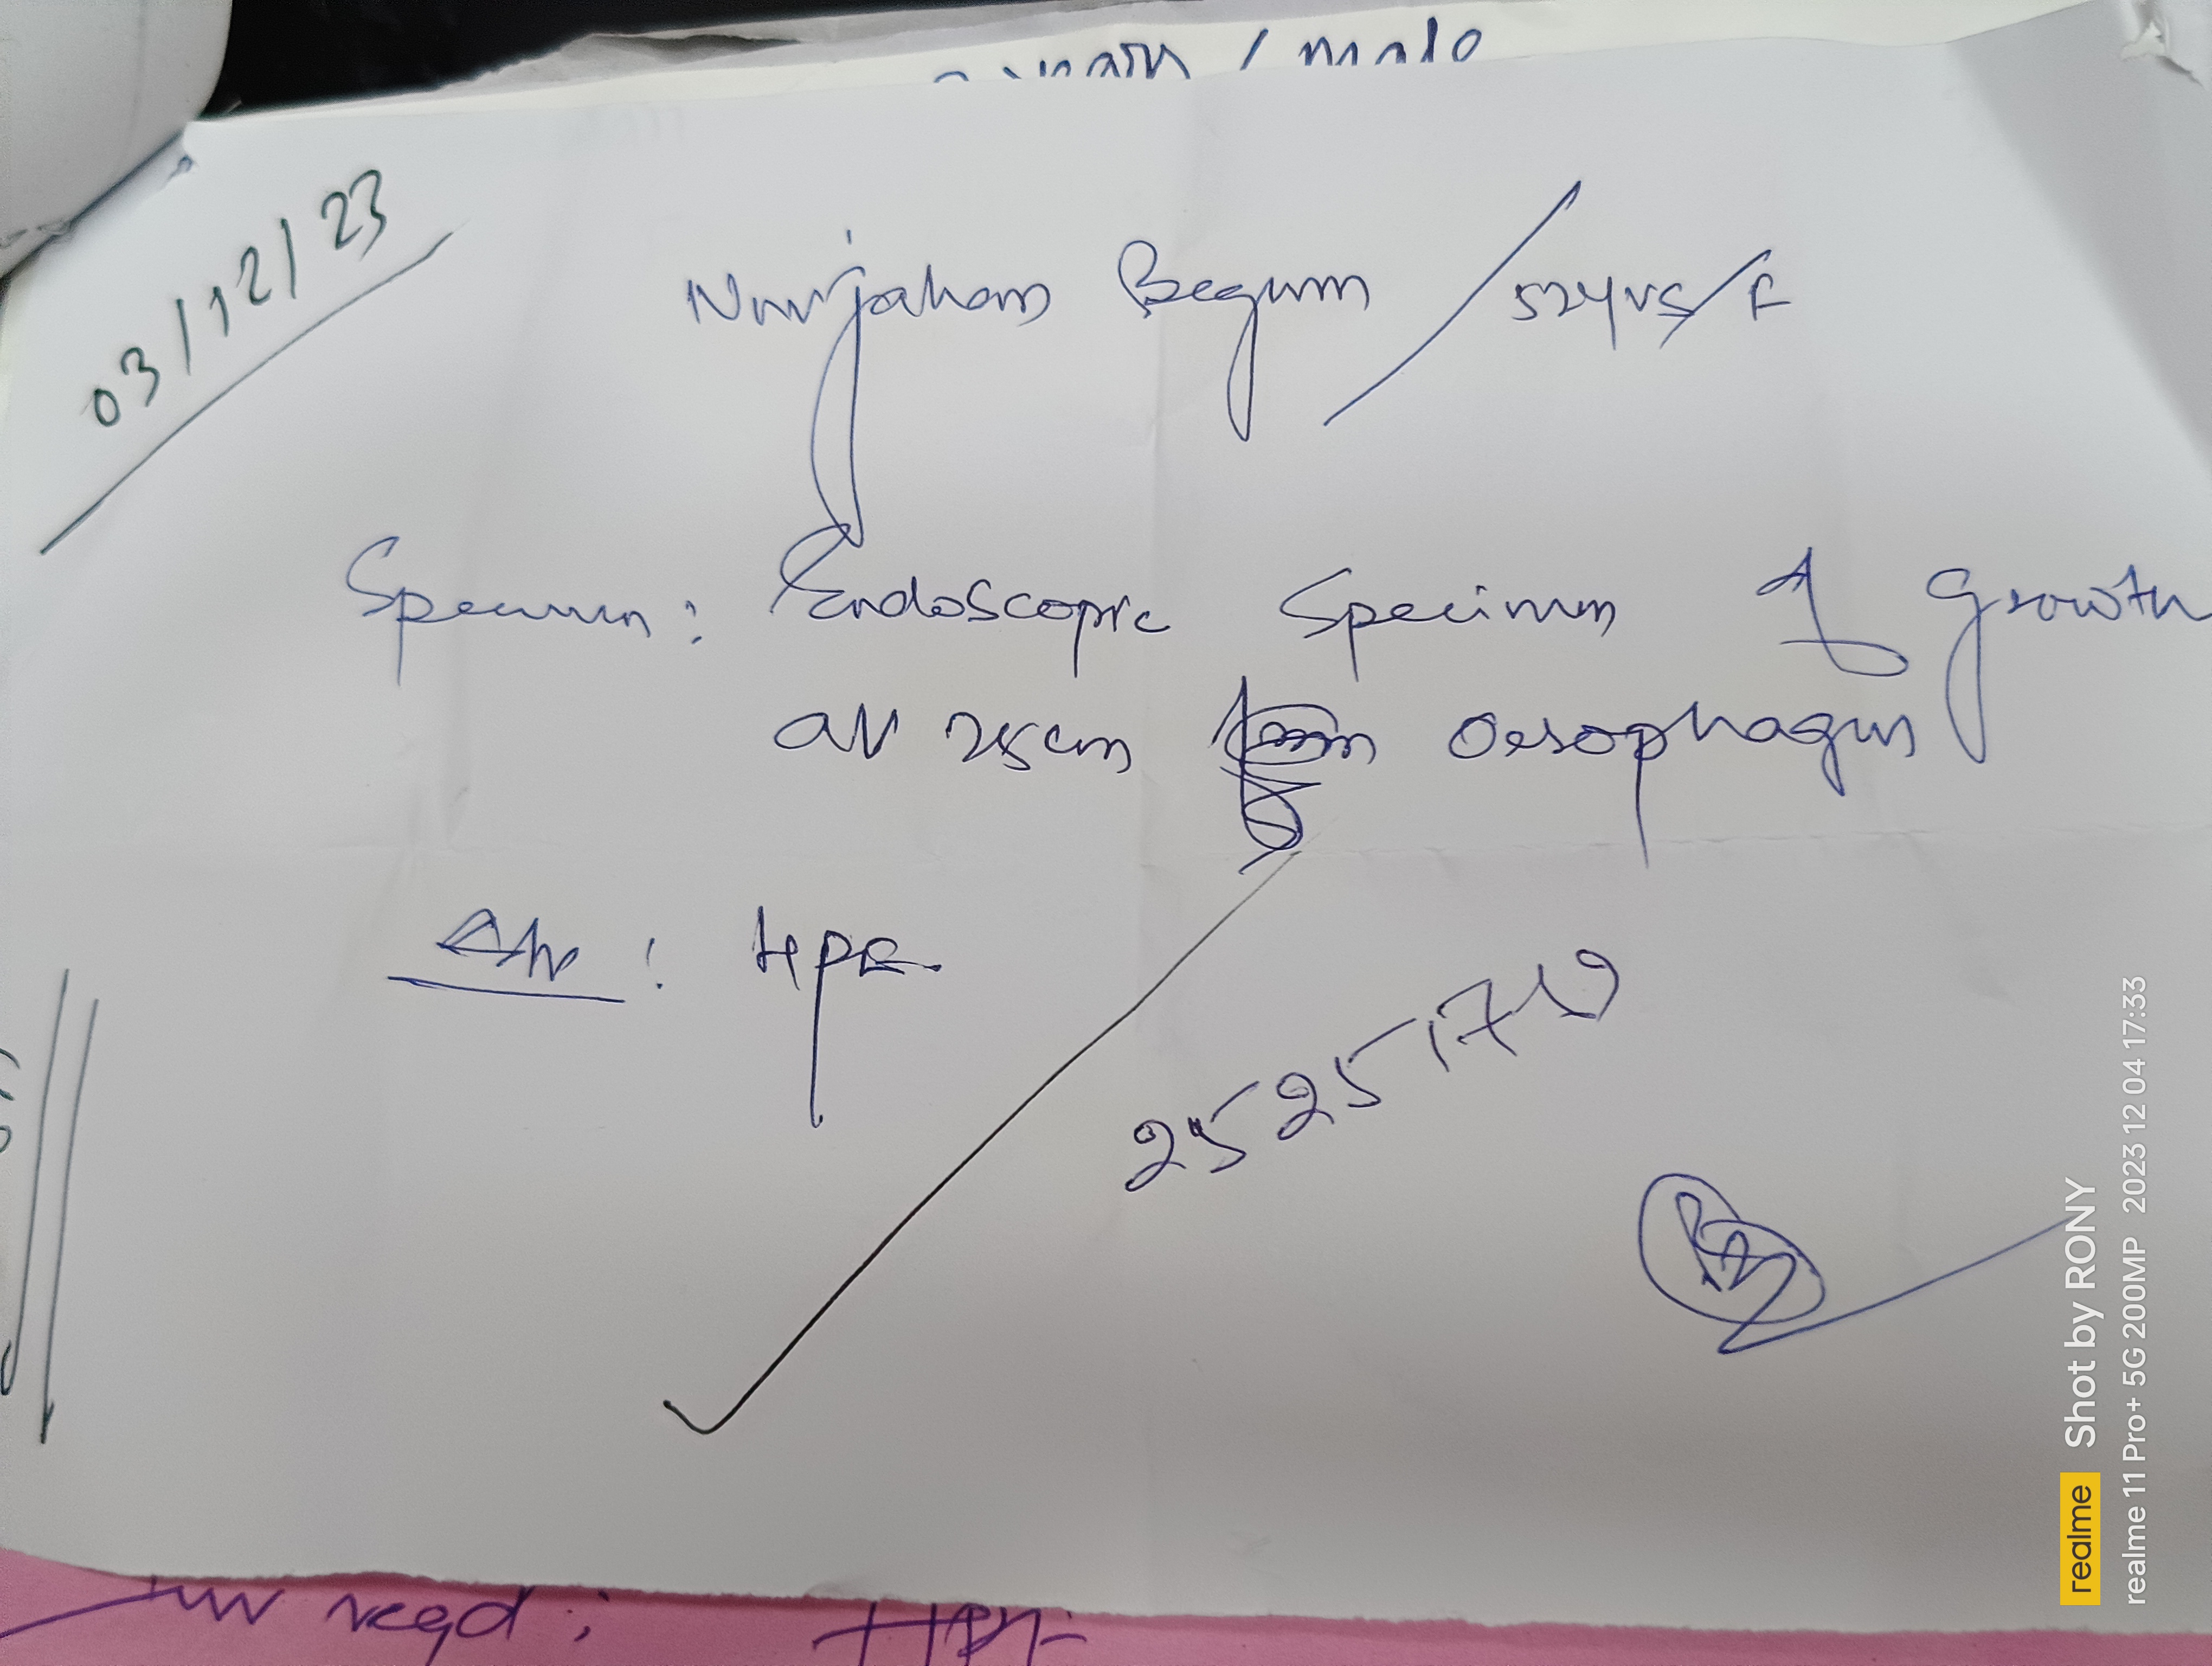 / male
03/12/23
Nurjahan Begum / 52yrs/F
Specimen: Endoscopic Specimen of Growth
at 25cm Oesophagus
Adv : HPE
25251719
Inv reqd : HPE
realme Shot by RONY
realme 11 Pro+ 5G 200MP 2023 12 04 17:33